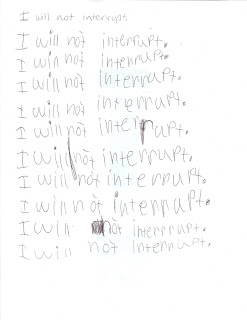 I will not interrupt.
I will not interrupt.
I will not interrupt.
I will not interrupt.
I will not interrupt.
I will not interrupt.
I will not interrupt.
I will not interrupt.
I will not interrupt.
I will not interrupt.
I will not interrupt.